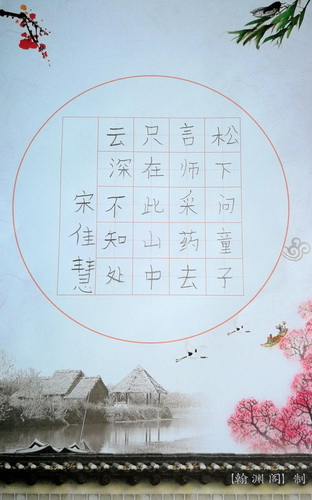 松下问童子
言师采药去
只在此山中
云深不知处
宋佳慧
【翰渊阁】制